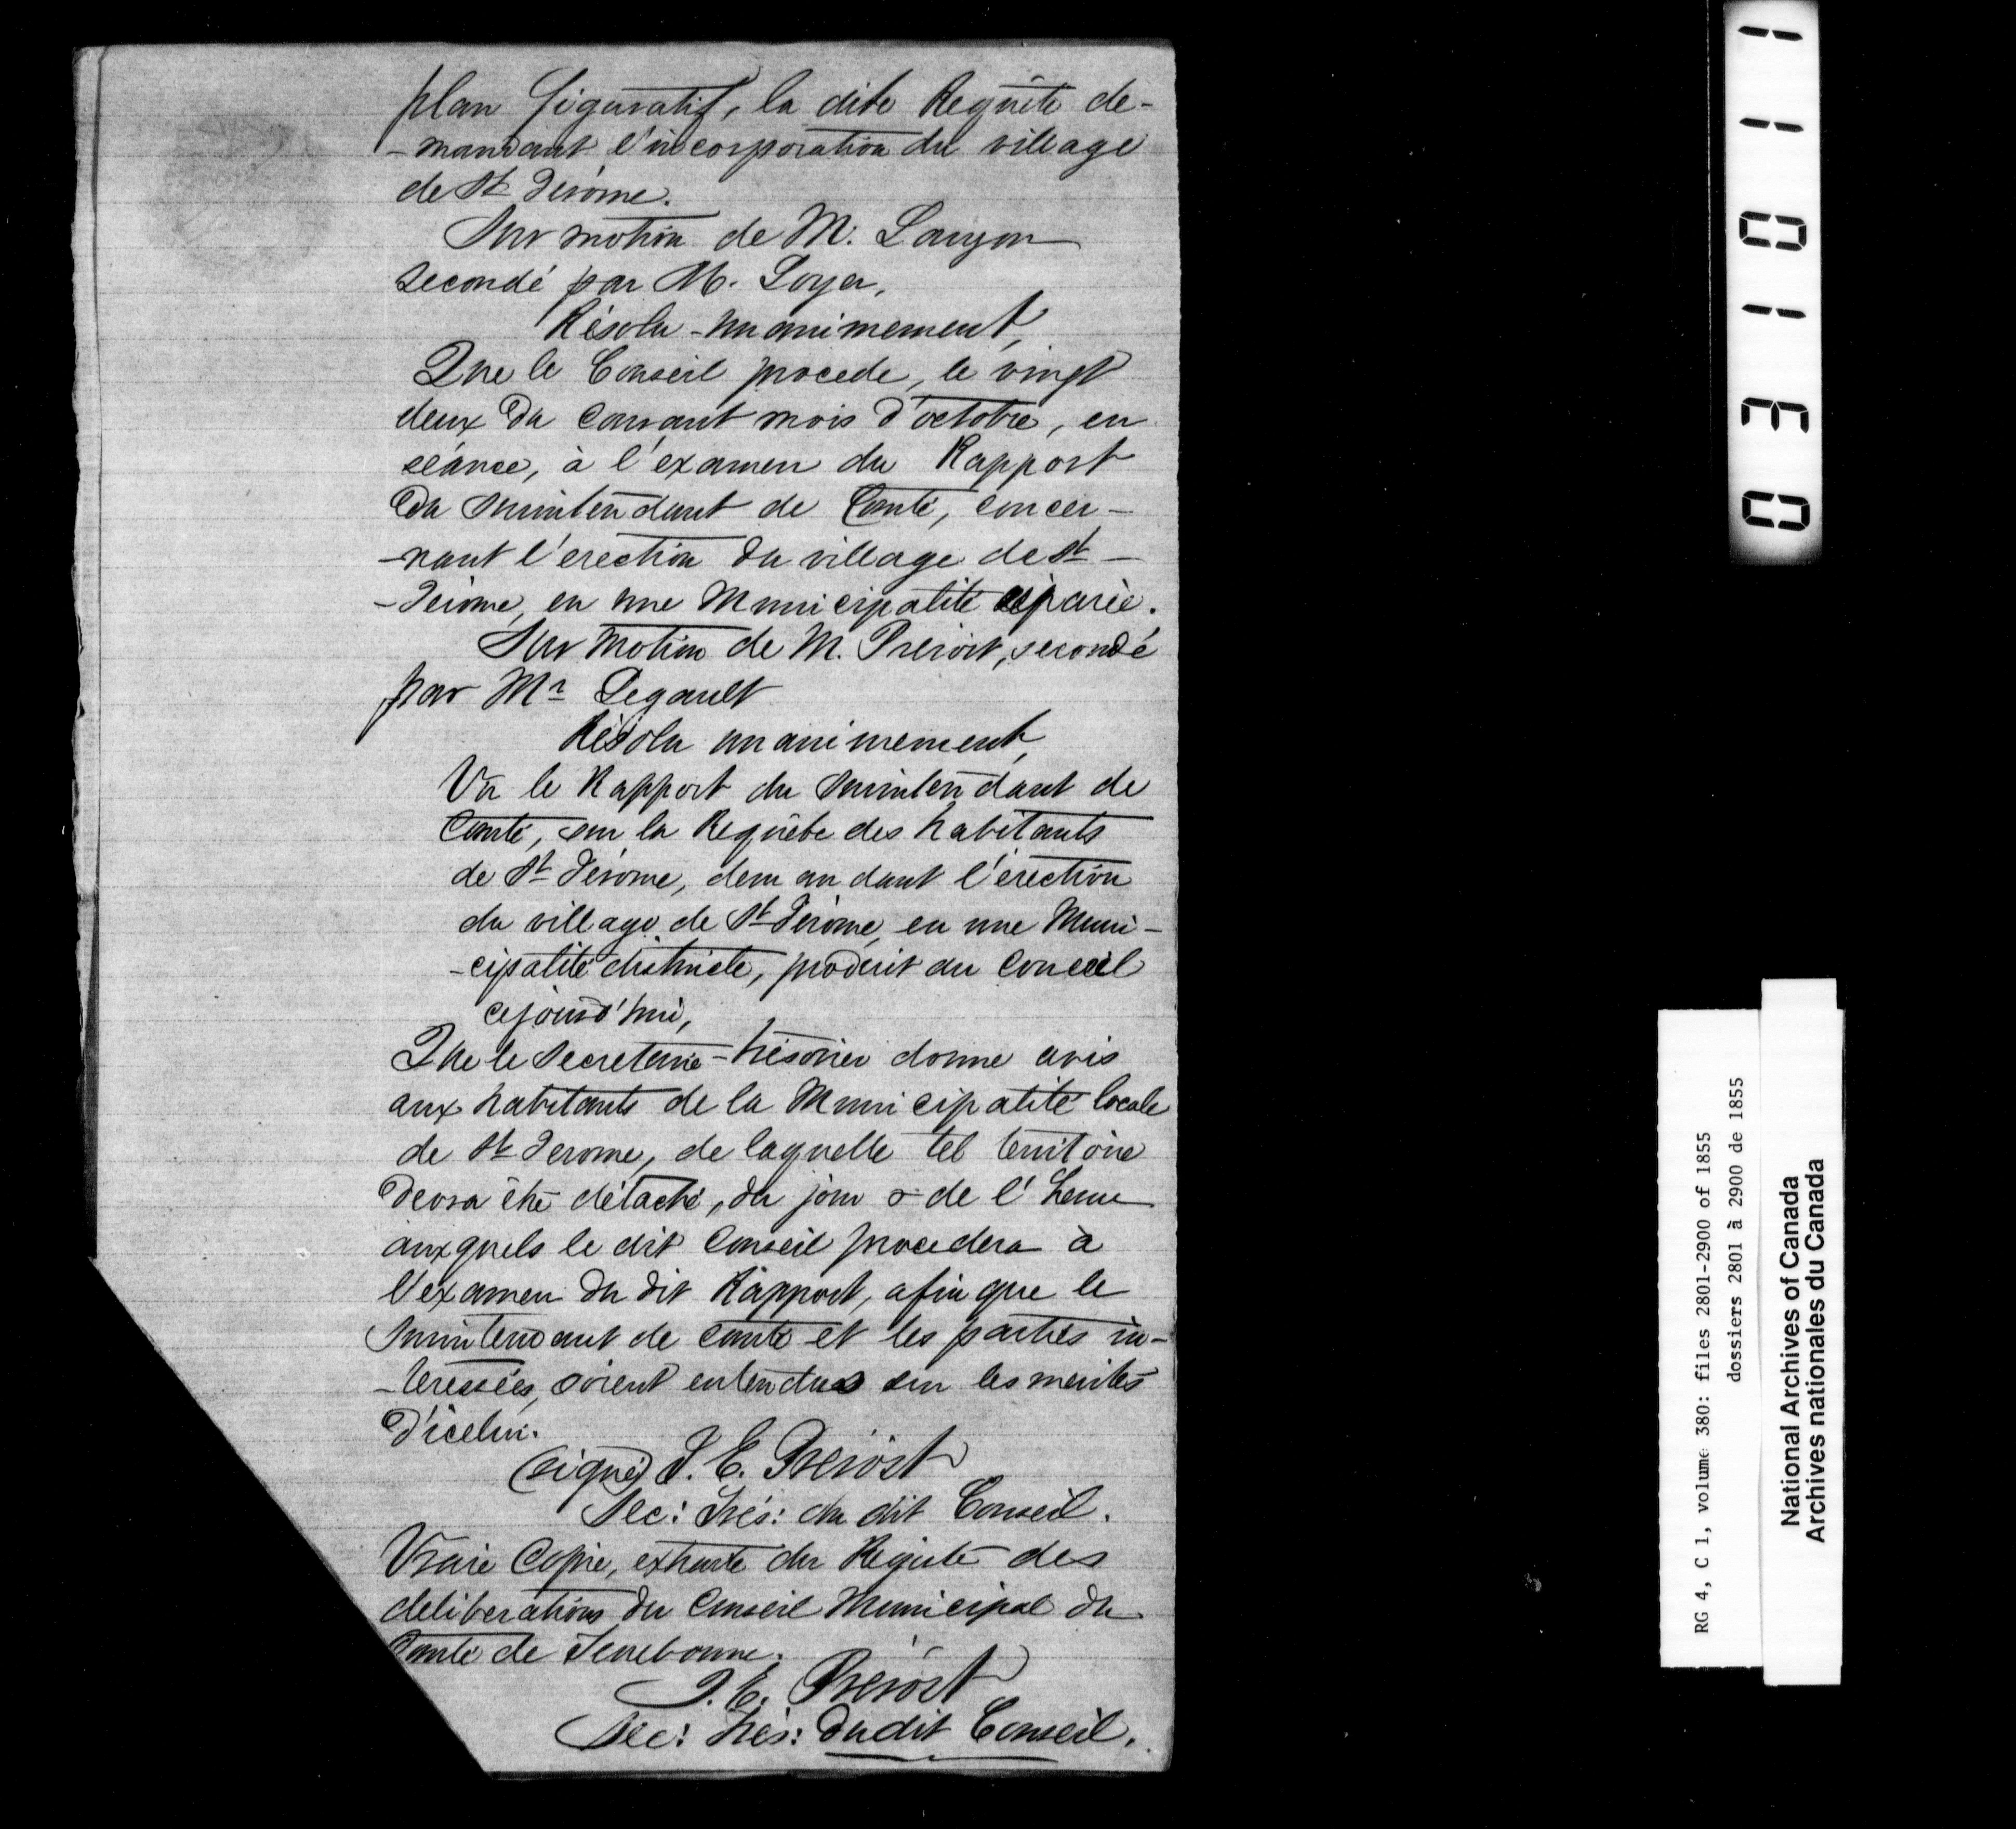 plan figuratif, la dite Requête de-
-mandant l'incorporation du village
de St Jérôme.
Sur motion de M. Lauzon
secondé par M. Loyer,
Résolu unanimement,
Que le Conseil procede, le vingt
deux du courant mois d'octobre, en
séance, à l'examen du Rapport
du surintendant de Comté, concer-
-nant l'erection du village de St-
-Jérome, en une Municipalité séparée.
Sur motion de M. Prévost, secondé
par Mr Legault
Résolu unanimement,
Vu le Rapport du surintendant de
Comté, sur la Requête des habitants
de St Jérome, demandant l'érection
du village de St Jérome, en une Muni-
-cipalité distincte, produit au Conseil
cejourd'hui,
Que le Secretaire-trésorier donne avis
aux habitants de la Municipalité locale
de St Jerome, de laquelle tel territoire
devra être détaché, du jour & de l'heure
auxquels le dit Conseil procedera à
l'examen du dit Rapport, afin que le
surintendant de comté et les parties in-
-teressées, soient entendus sur les mérites
d'icelui.
(signé) J. E. Prévost
Sec: Trés: du dit Conseil.
Vraie Copie, extraite du Registre des
deliberations du Conseil Municipal du
Comté de Terrebonne.
J. E. Prévost
Sec: Trés: du dit Conseil.
031011
RG 4, C 1, volume 380: files 2801-2900 of 1855
dossiers 2801 à 2900 de 1855
National Archives of Canada
Archives nationales du Canada